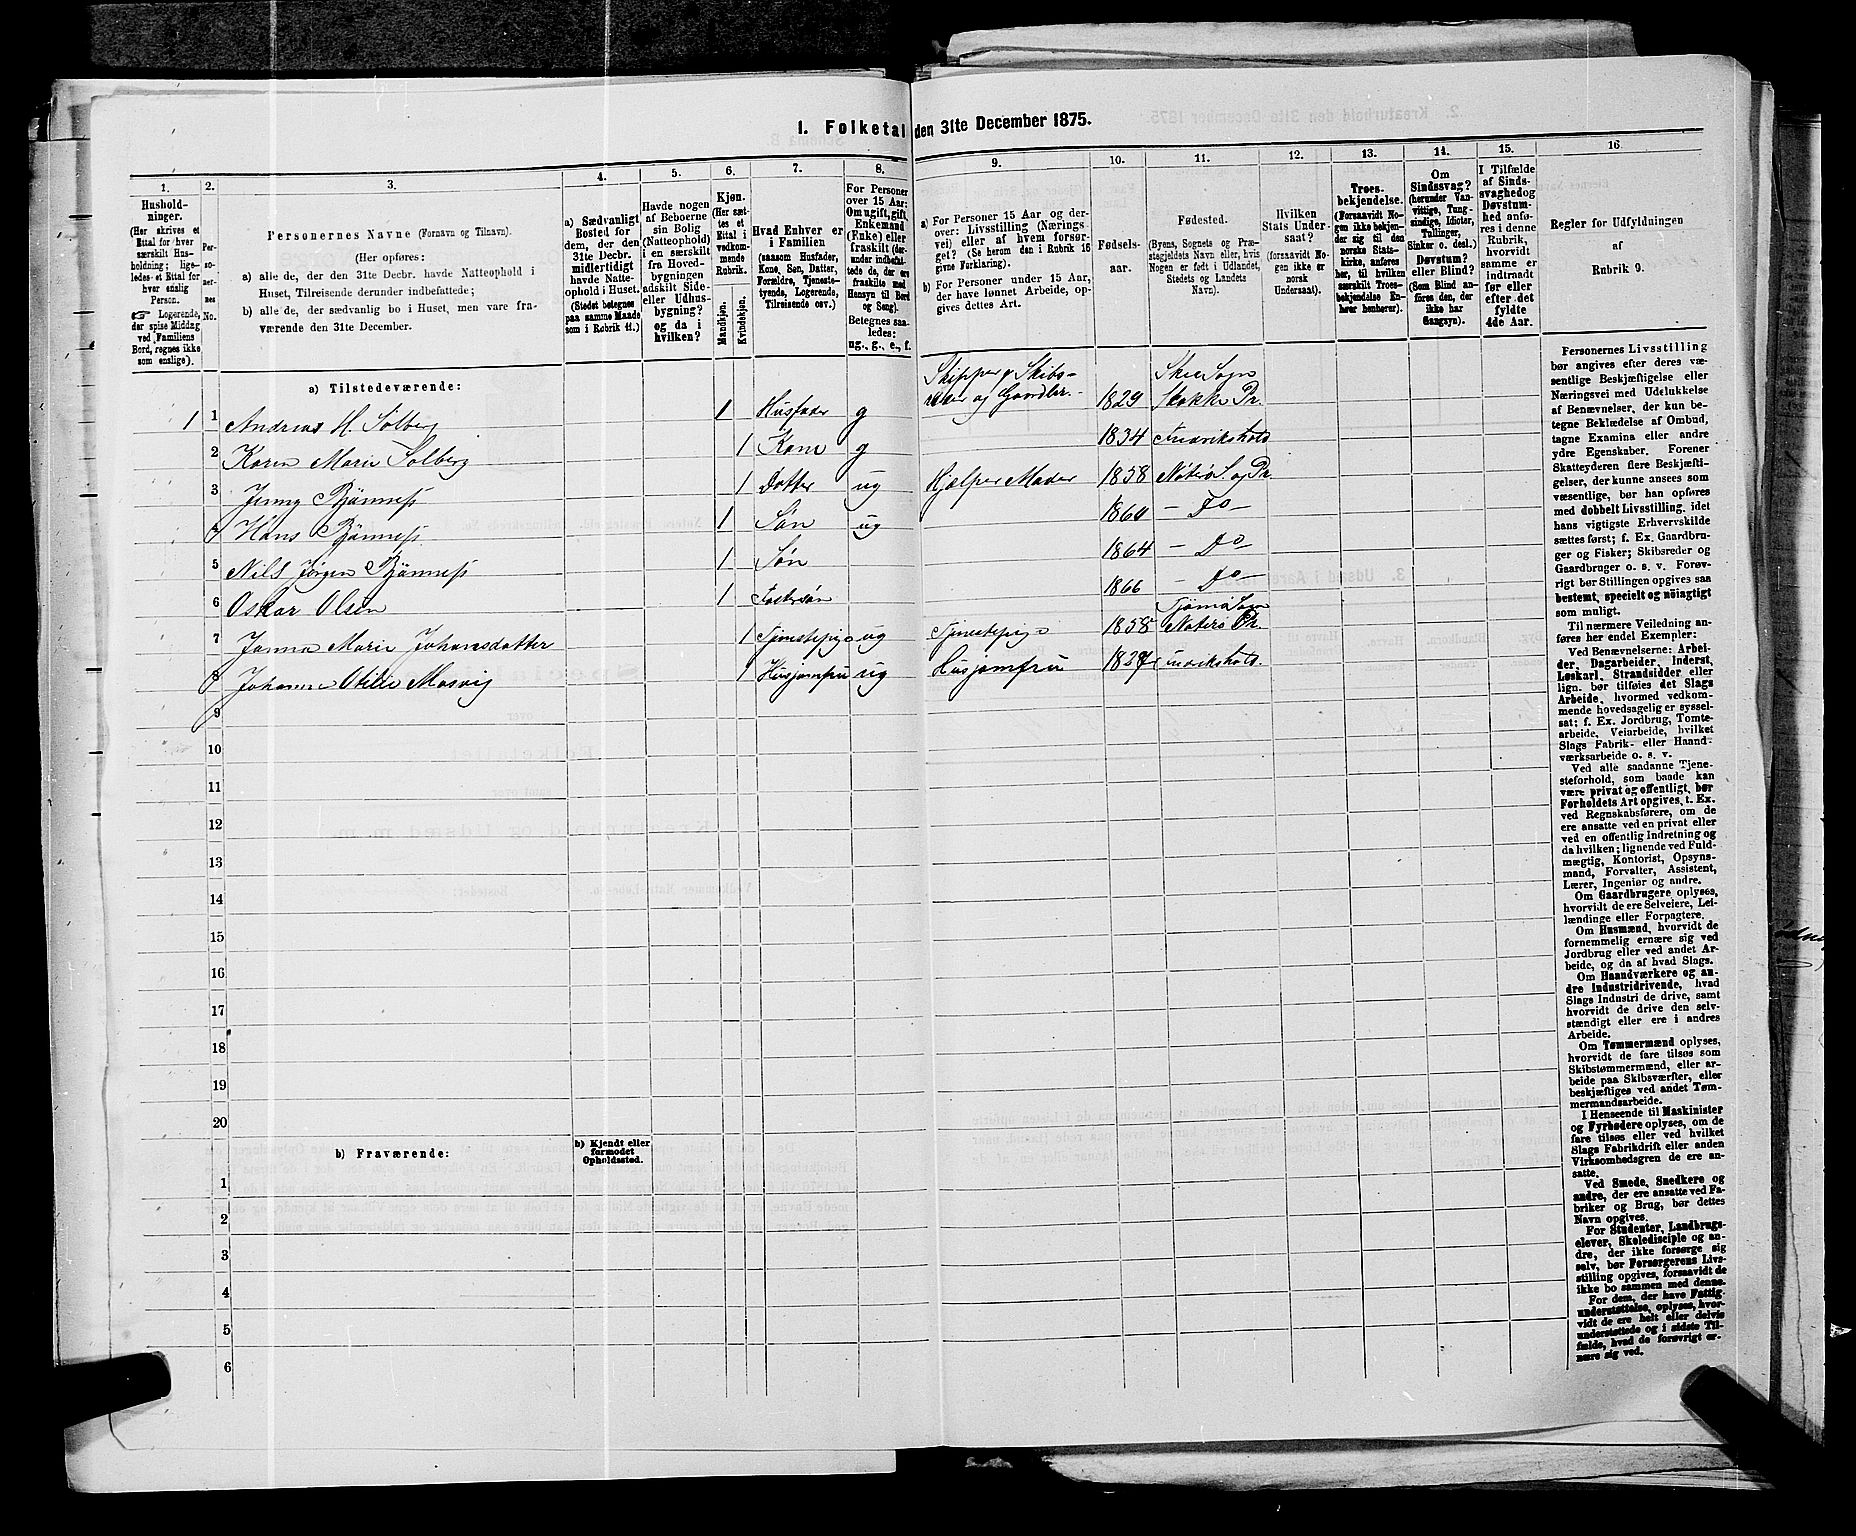 1. Folketal den 31te December 1875.
1.
2.
3.
4.
5.
6.
7.
8.
9.
10.
11.
12.
13.
14.
15.
16.
Hushold-
ninger.
(Her skrives et
Ettal for hver
særskilt Hus-
holdning; lige-
ledes et Ettal for
hver enslig
Person.
☞ Logerende,
der spise Middag
ved Familiens
Bord, regnes ikke
som enslige).
Per-
so-
ner-
nes
No.
Personernes Navne (Fornavn og Tilnavn).
(Her opføres:
a) alle de, der den 31te Decbr. havde Natteophold i
Huset, Tilreisende derunder indbefattede;
b) alle de, der sædvanlig bo i Huset, men vare fra-
værende den 31te December.
a) Sædvanligt
Bosted for
dem, der den
31te Decbr.
midlertidigt
havde Natte-
ophold i Huset.
(Stedet betegnes
paa samme Maade
som i Rubrik 11.)
Havde nogen
af Beboerne
sin Bolig
(Natteophold)
i en særskilt
fra Hoved-
bygningen
adskilt Side-
eller Udhus-
bygning?
og da i
hvilken?
Kjøn.
(Her sæt-
tes et
Ettal i
vedkom-
mende
Rubrik.
Mandkjøn.
Kvindekjøn.
Hvad Enhver er
i Familien
(saasom Husfader,
Kone, Søn, Datter,
Forældre, Tjeneste-
tyende, Logerende,
Tilreisende osv.)
For Personer
over 15 Aar:
Om ugift, gift,
Enkemand
(Enke) eller
fraskilt (der-
under indbefat-
tede de, der ere
fraskilte med
Hensyn til Bord
og Seng).
Betegnes saa-
ledes:
ug., g., e., f.
a) For Personer 15 Aar og der-
over: Livsstilling (Nærings-
vei) eller af hvem forsør-
get? (Se herom den i Rubrik 16
givne Forklaring).
b) For Personer under 15 Aar,
der have lønnet Arbeide, op-
gives dettes Art.
Fødsels-
aar.
Fødested.
(Byens, Sognets og Præ-
stegjeldets Navn eller, hvis
Nogen er født i Udlandet,
Stedets og Landets
Navn).
Hvilken
Stats Under-
saat?
(forsaavidt No-
gen ikke er
norsk
Undersaat).
Troes-
bekjendelse.
(Forsaavidt No-
gen ikke bekjen-
der sig til den
norske Stats-
kirke, anføres
her, til hvilken
særskilt Troes-
bekjendelse En-
hver henhører).
Om
Sindssvag?
(herunder Van-
vittige, Tung-
sindige, Idioter,
Tullinger,
Sinker o. desl.)
Døvstum?
eller Blind?
(Som Blind an-
føres den, der
ikke har
Gangsyn).
I Tilfælde
af Sinds-
svaghed og
Døvstum-
hed anfø-
res i denne
Rubrik,
hvorvidt
samme er
indtraadt
før eller
efter det
fyldte
4de Aar.
Regler for Udfyldningen
af
Rubrik 9.
a) Tilstedeværende:
1 1 Andreas H. Sölberg 1 Husfader g Skipper, Skibs- reder og Gaardbr. 1829 Skee Sogn Stokke Pr.
2 Karen Marie Solberg 1 Kone g 1834 Fredrikshald
3 Jenny Bjönness 1 Datter ug Hjælper Moder 1858 Nøtterø S. og Pr.
4 Hans Bjönness 1 Søn ug 1860 – Do –
5 Nils Jørgen Bjönness 1 Søn 1864 – Do
6 Oskar Olsen 1 Fostersøn 1866 – Do
7 Janna Marie Johansdatter 1 Tjenestepige ug Tjenestepige 1858 Tjömö Sogn Nøtterö Pr.
8 Johanne Otilie Mosvig 1 Husjomfru ug Husjomfru 1827 Fredrikshald.
9
10
11
12
13
14
15
16
17
18
19
20
b) Fraværende:
b) Kjendt eller
formodet
Opholdssted.
1
2
3
4
5
6
Personernes Livsstilling
bør angives efter deres væ-
sentlige Beskjæftigelse eller
Næringsvei med Udelukkelse
af Benævnelser, der kun be-
tegne Beklædelse af Ombud,
tagne Examina eller andre
ydre Egenskaber. Forener
Skatteyderen flere Beskjæfti-
gelser, der kunne ansees som
væsentlige, bør han opføres
med dobbelt Livsstilling, idet
hans vigtigste Erhvervskilde
sættes først; f. Ex. Gaardbru-
ger og Fisker; Skibsreder og
Gaardbruger o. s. v. Forøv-
rigt bør Stillingen opgives saa
bestemt, specielt og nöiagtigt
som muligt.
Til nærmere Veiledning an-
føres her endel Exempler:
Ved Benævnelserne: Arbei-
der, Dagarbeider, Inderst,
Løskarl, Strandsidder eller
lign. bør tilføies det Slags
Arbeide, hvormed vedkom-
mende hovedsagelig er syssel-
sat; f. Ex. Jordbrug, Tomte-
arbeide, Veiarbeide, hvilket
Slags Fabrik- eller Haand-
værksarbeide o. s. v.
Ved alle saadanne Tjene-
steforhold, som baade kan
være privat og offentligt, bør
Forholdets Art opgives, t. Ex.
ved Regnskabsførere, om de
ere ansatte ved en privat eller
ved en offentlig Indretning og
da hvilken; lignende ved Fuld-
mægtig, Kontorist, Opsyns-
mand, Forvalter, Assistent,
Lærer, Ingeniør og andre.
Om Gaardbrugere oplyses,
hvorvidt de ere Selveiere, Lei-
lændinge eller Forpagtere.
Om Husmænd, hvorvidt de
fornemmelig ernære sig ved
Jordbrug eller ved andet Ar-
beide, og da af hvad Slags.
Om Haandværkere og an-
dre Industridrivende, hvad
Slags Industri de drive, samt
hvorvidt de drive den selv-
stændigt eller ere i andres
Arbeide.
Om Tømmermænd oplyses,
hvorvidt de fare tilsøs som
Skibstømmermænd, eller ar-
beide paa Skibsværfter, eller
beskjæftiges ved andet Tøm-
mermandsarbeide.
I Henseende til Maskinister
og Fyrbødere oplyses, om de
fare tilsøs eller ved hvilket
Slags Fabrikdrift eller anden
Virksomhedsgren de ere an-
satte.
Ved Smede, Snedkere og
andre, der ere ansatte ved Fa-
briker og Brug, bør dettes
Navn opgives.
For Studenter, Landbrugs-
elever, Skoledisciple og an-
dre, der ikke forsørge sig
selv, bør Forsørgerens Livs-
stilling opgives, forsaavidt de
ikke bo sammen med denne.
For dem, der have Fattig-
understøttelse, oplyses, hvor-
vidt de ere helt eller delvis
understøttede og i sidste Til-
fælde, hvad de forøvrigt er-
nære sig ved.